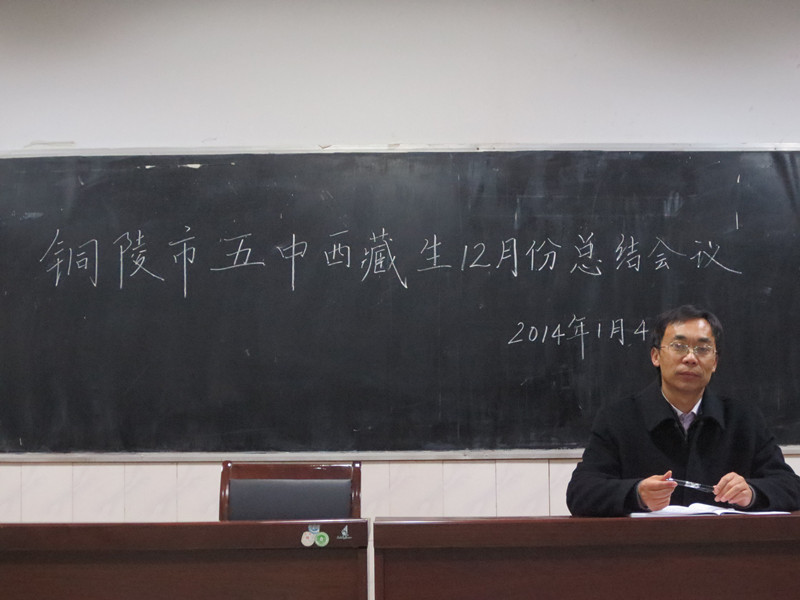 铜陵市五中西藏生12月份总结会议
2014年1月4